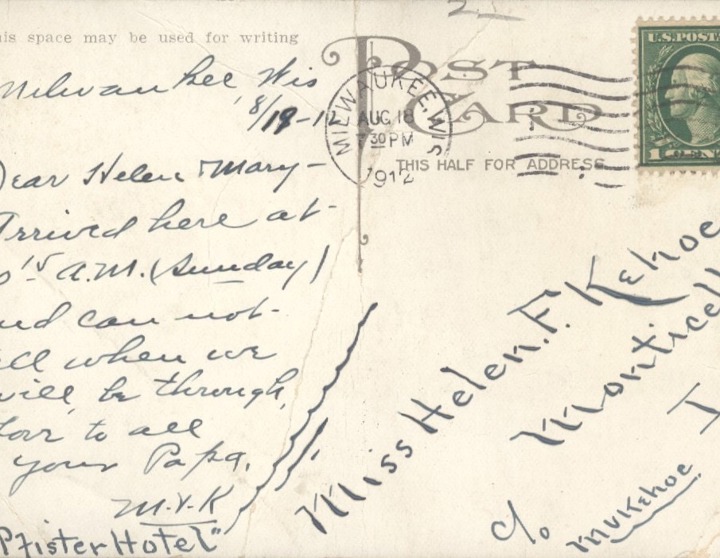 his space may be used for writing
Milwaukee, Wis
8/19-12
Dear Helen & Mary-
Arrived here at
15 A.M. (Sunday)
and can not
tell when we
will be through,
Love to all
your Papa.
M.V.K
"Pfister Hotel"
POST CARD
THIS HALF FOR ADDRESS
MILWAUKEE, WIS
AUG 18
7 30 PM
1912
U.S. POST
1 CENT
Miss Helen. F. Kehoe
Monticell
I
c/o MVKehoe